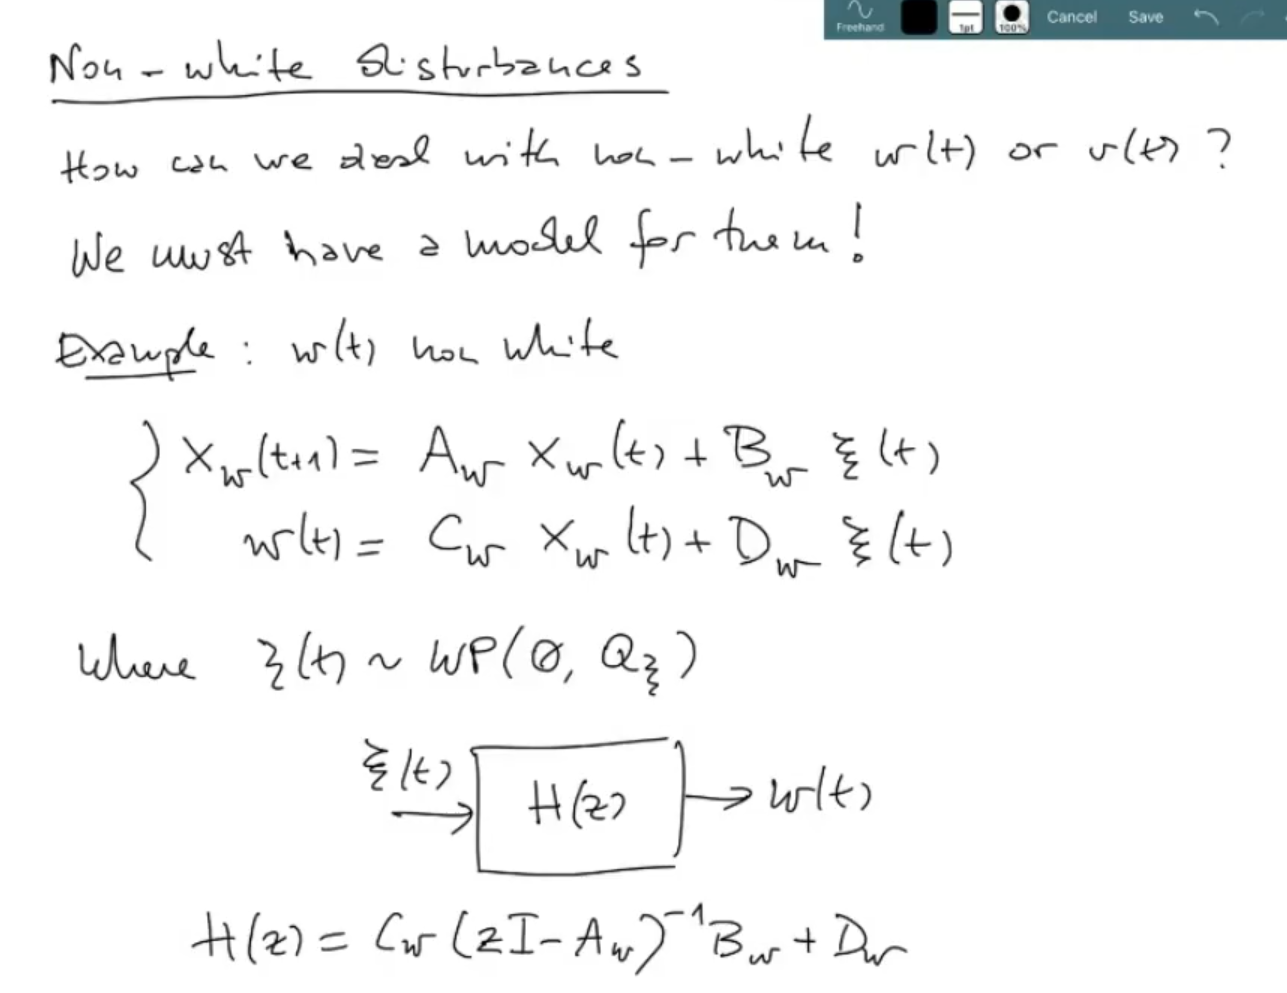 Freehand 1pt 100% Cancel Save
Non-white disturbances
How can we deal with non-white w(t) or v(t)?
We must have a model for them!
Example: w(t) non white
{ x_w(t+1) = A_w x_w(t) + B_w ξ(t)
w(t) = C_w x_w(t) + D_w ξ(t)
where ξ(t) ~ WP(0, Q_ξ)
ξ(t) → H(z) → w(t)
H(z) = C_w (zI - A_w)^{-1} B_w + D_w